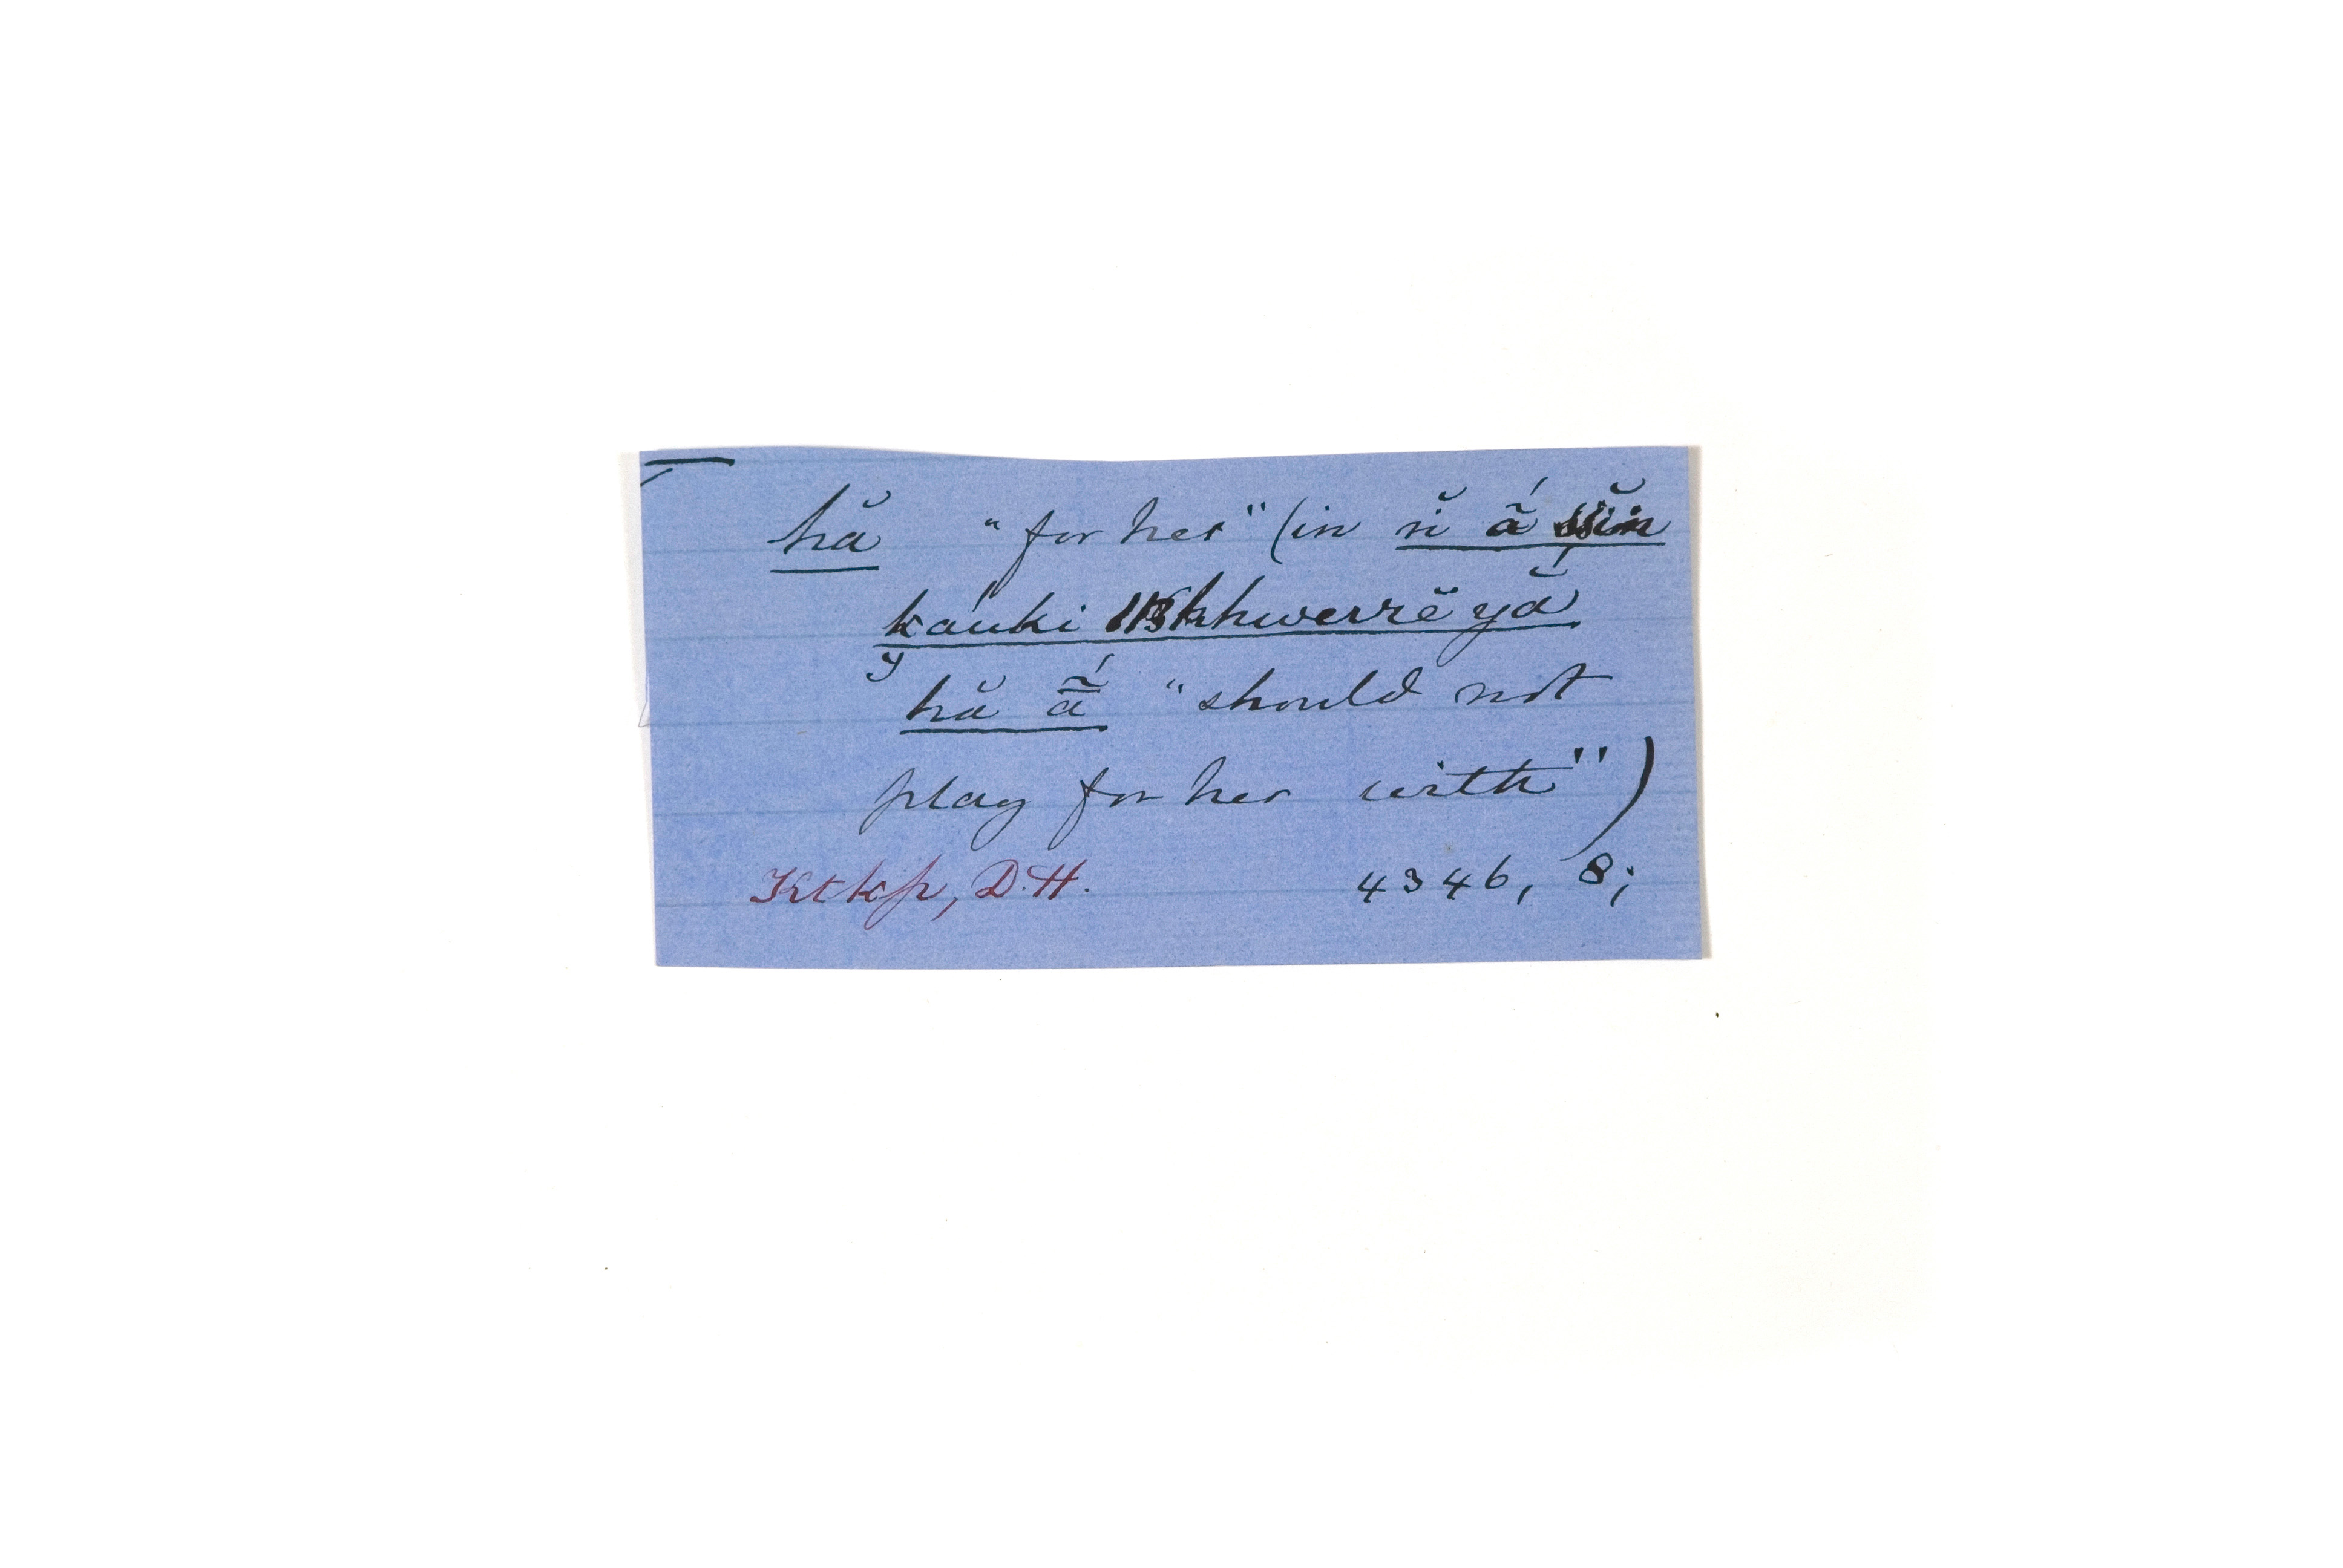 hă "for her" (in ñ ã́
kauki khwerrĕ yắ
hă ã̄́ "should not
play for her with")
Ktkp, D.H. 4346, 8;